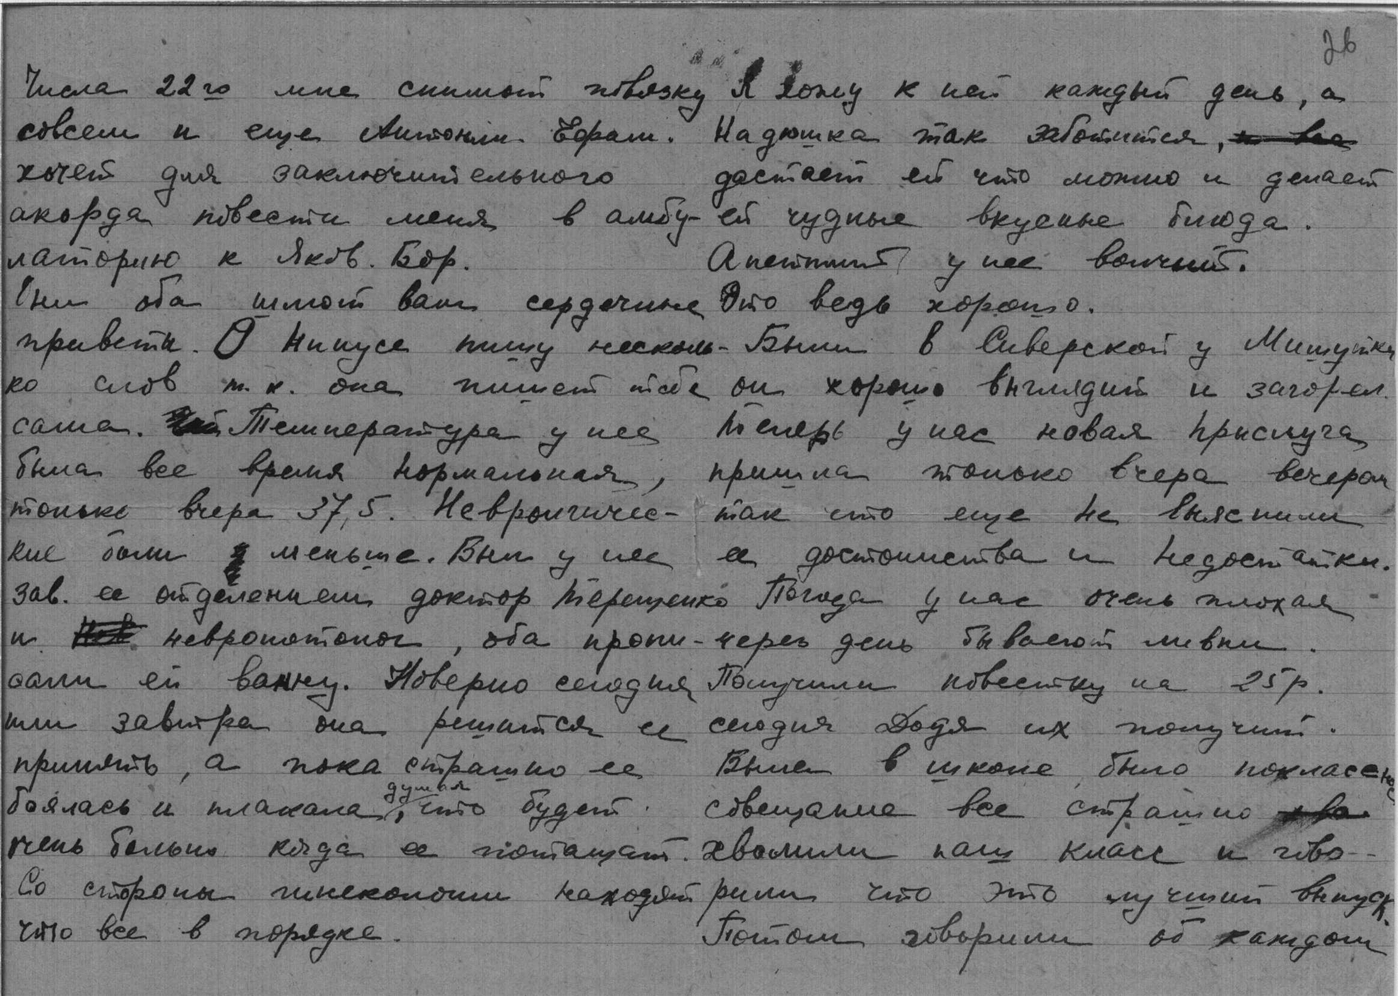 26
Числа 22го мне снимают повязку
совсем и еще Антонин Ефрам.
хочет для заключительного
акорда повести меня в амбу-
латорию к Яков. Бор.
Они оба шлют вам сердечные
приветы. О Нинусе пишу несколь-
ко слов т.к. она пишет тебе
сама. Температура у нее
была все время нормальная,
только вчера 37,5. Неврологичес-
кие боли меньше. Был у нее
зав. ее отделением доктор Терещенко
и невропотолог, оба пропи-
сали ей ванну. Наверно сегодня
или завтра она решится ее
принять, а пока страшно ее
боялась и плакала, думая что будет
очень больно когда ее потащат.
Со стороны гинекологии находят
что все в порядке.
Я хожу к ней каждый день, а
Надюшка так заботится,
достает ей что можно и делает
ей чудные вкусные блюда.
Апетит у нее волчий.
Это ведь хорошо.
Были в Сиверской у Мишутки
он хорошо выглядит и загорел.
Теперь у нас новая прислуга
пришла только вчера вечером
так что еще не выяснили
ее достоинства и недостатки.
Погода у нас очень плохая
через день бывают ливни.
Получили повестку на 25 р.
сегодня Додя их получит.
Была в школе, было поклассное
совещание все страшно
хвалили наш класс и гово-
рили что это лучший выпуск.
Потом говорили об каждом